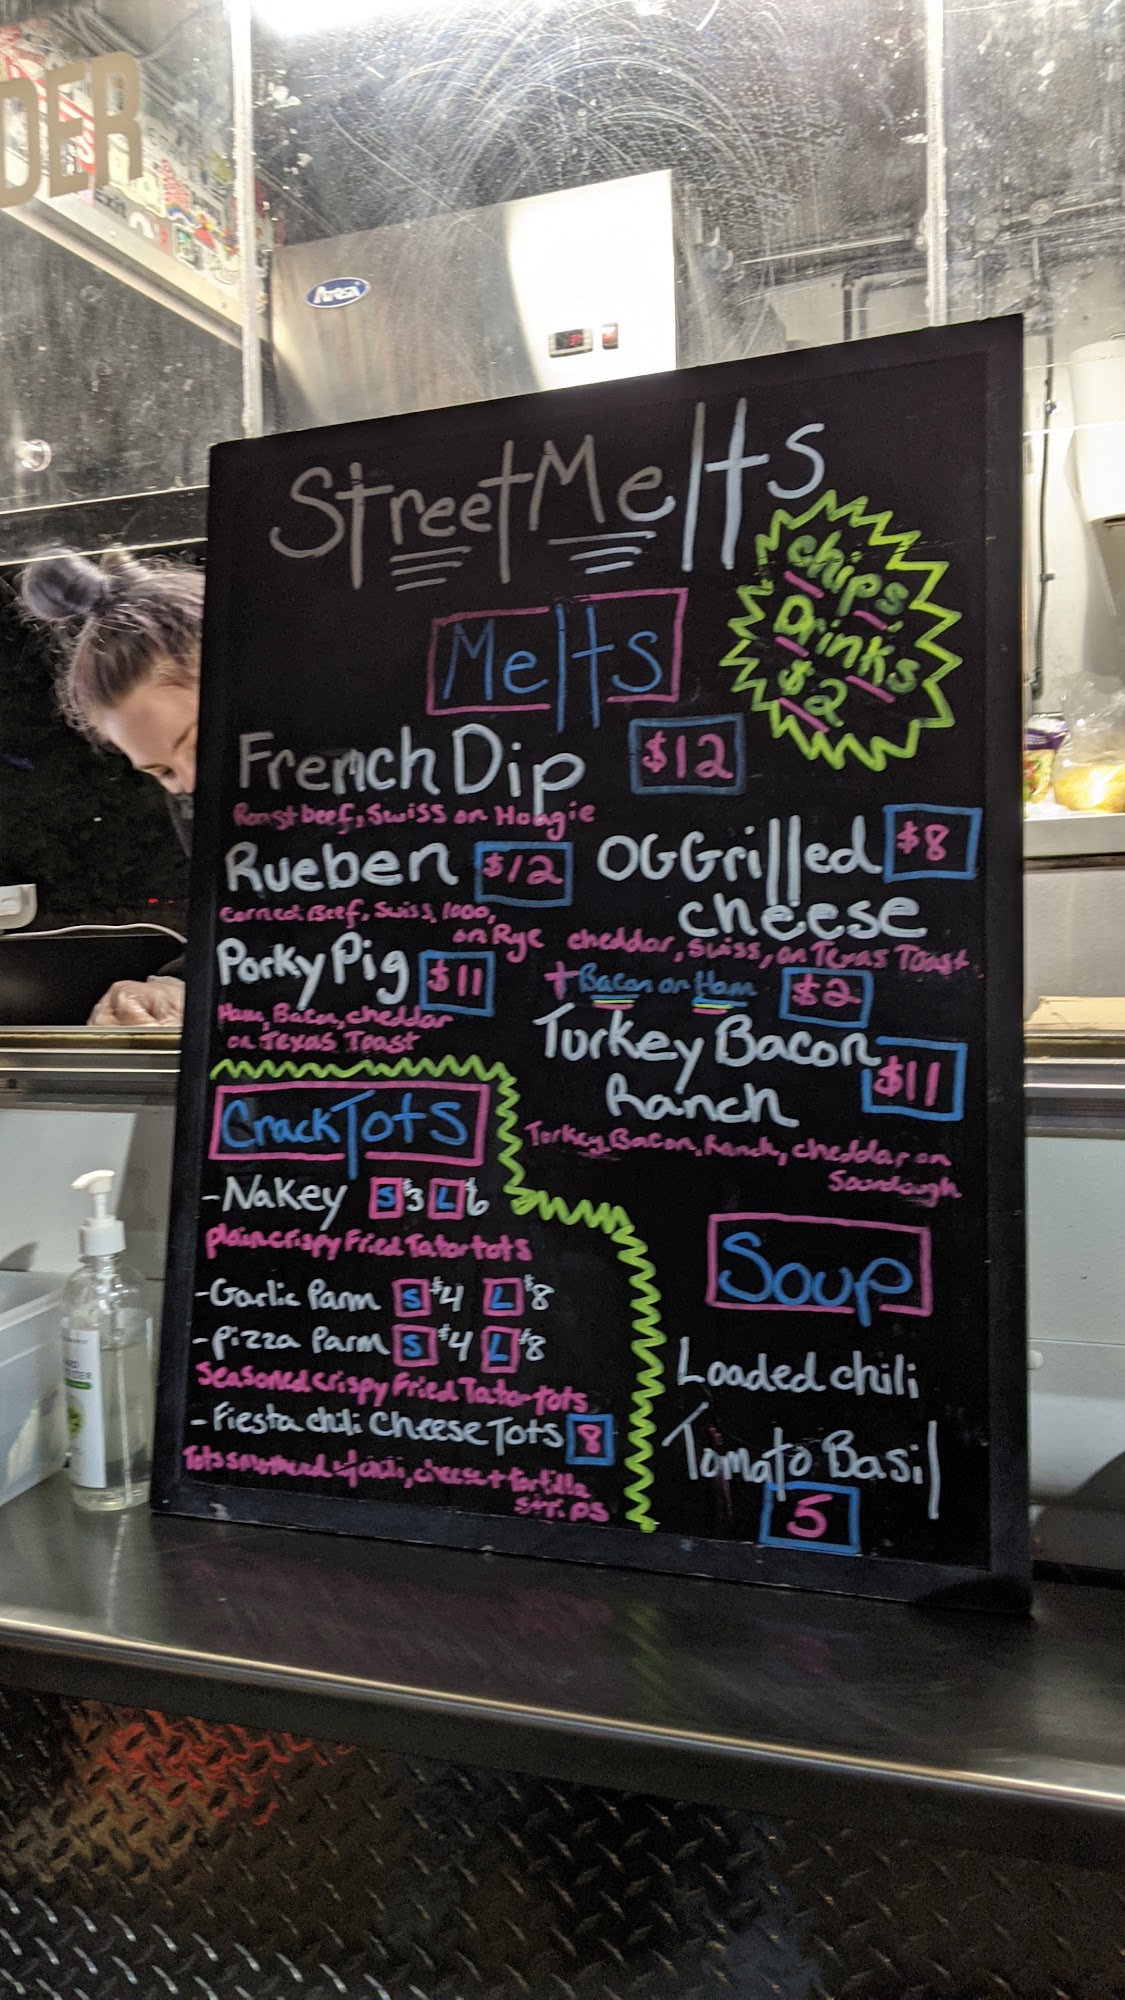 DER
Exit
Arctic Air
StreetMelts
Chips,
Drinks
$2
Melts
French Dip $12
Roast beef, Swiss on Hoagie
Rueben $12
Corned Beef, Swiss, 1000,
on Rye
Porky Pig $11
Ham, Bacon, cheddar
on Texas Toast
OG Grilled $8
cheese
cheddar, Swiss, on Texas Toast
+ Bacon or Ham $2
Turkey Bacon
Ranch $11
Turkey, Bacon, Ranch, cheddar on
Sourdough
Crack Tots
- Nakey S $3 L $6
plain crispy Fried Tator tots
- Garlic Parm S $4 L $8
- Pizza Parm S $4 L $8
Seasoned crispy Fried Tator tots
- Fiesta chili Cheese Tots 8
Tots smothered chili, cheese + tortilla
strips
Soup
Loaded chili
Tomato Basil
5